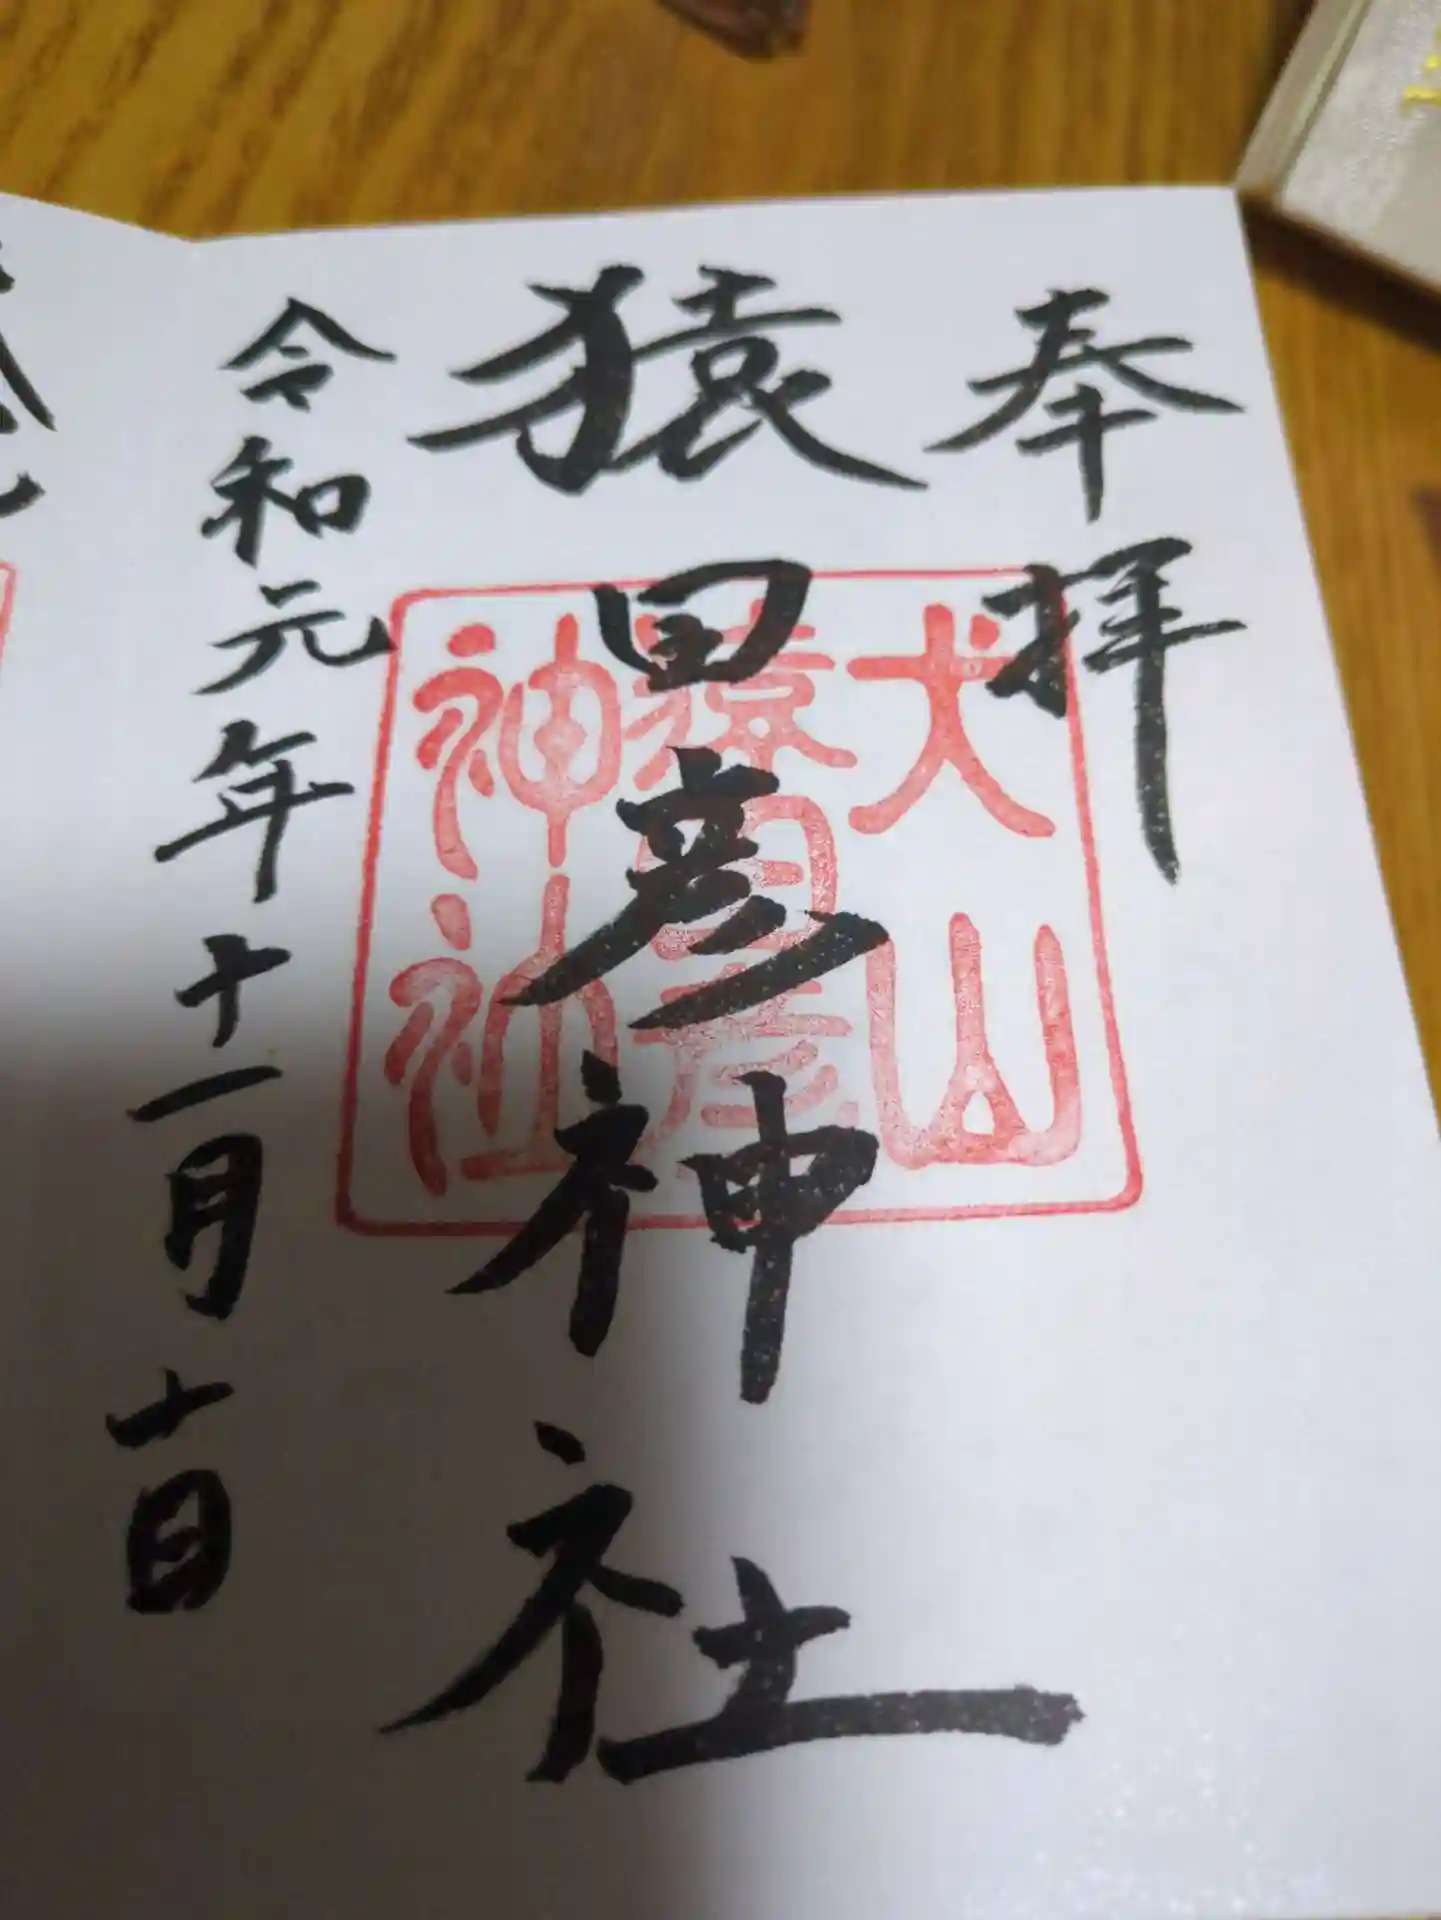 奉拝
猿田彦神社
令和元年十一月十日
犬山
猿田彦
神社